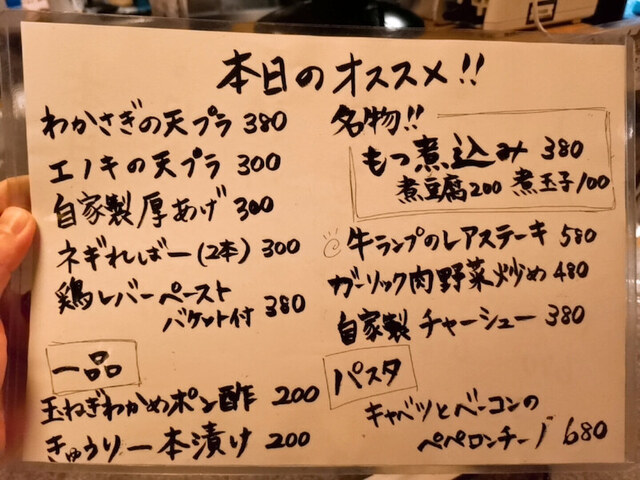 本日のオススメ!!
わかさぎの天プラ 380
エノキの天プラ 300
自家製厚あげ 300
ネギればー(2本) 300
鶏レバーペースト
バケット付 380
一品
玉ねぎわかめポン酢 200
きゅうり一本漬け 200
名物!!
もつ煮込み 380
煮豆腐200 煮玉子100
牛ランプのレアステーキ 580
ガーリック肉野菜炒め 480
自家製チャーシュー 380
パスタ
キャベツとベーコンの
ペペロンチーノ 680